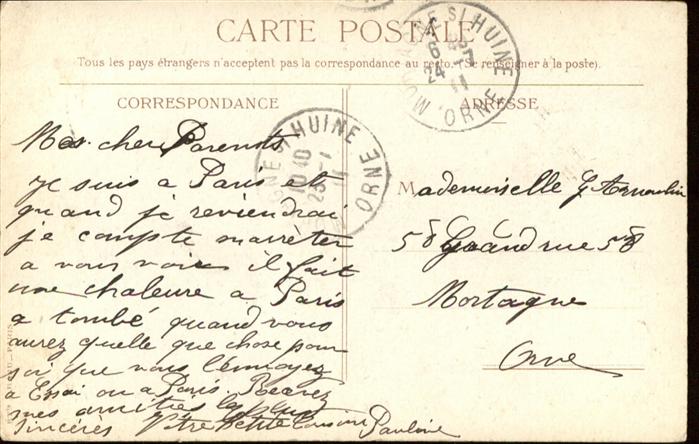 CARTE POSTALE
Tous les pays étrangers n'acceptent pas la correspondance au recto. (Se renseigner à la poste).
CORRESPONDANCE
Mes chers Parents
je suis a Paris et
quand je reviendrai
je compte marrèter
a vous voir il fait
une chaleure a Paris
a tombé quand vous
aurez quelle que chose pour
soi que vous l'envoyez
a Essai ou a Paris. Recevez
mes amitiés les plus
sincères Vôtre petite cousine Pauline
ADRESSE
Mademoiselle G Arnoulin
58 Grand rue 58
Mortagne
Orne
HUINE
ORNE
HUINE
ORNE